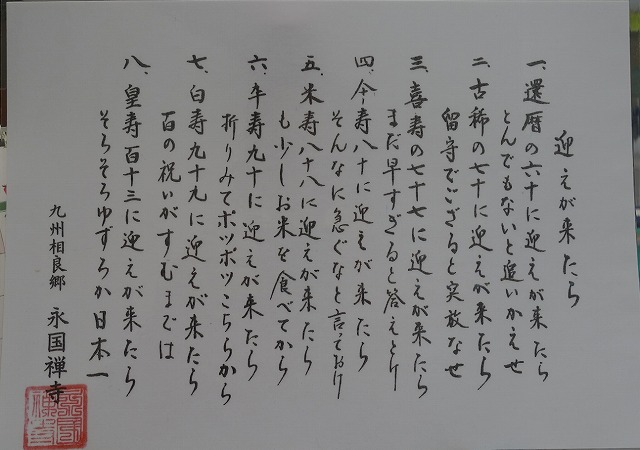 迎えが来たら
一、還暦の六十に迎えが来たら
とんでもないと追いかえせ
二、古稀の七十に迎えが来たら
留守でござると突放なせ
三、喜寿の七十七に迎えが来たら
まだ早すぎると答えとけ
四、傘寿八十に迎えが来たら
そんなに急ぐなと言っておけ
五、米寿八十八に迎えが来たら
も少しお米を食べてから
六、卒寿九十に迎えが来たら
折りみてポツポツこちらから
七、白寿九十九に迎えが来たら
百の祝いがすむまでは
八、皇寿百十三に迎えが来たら
そろそろゆずろか日本一
九州相良郷 永国禅寺